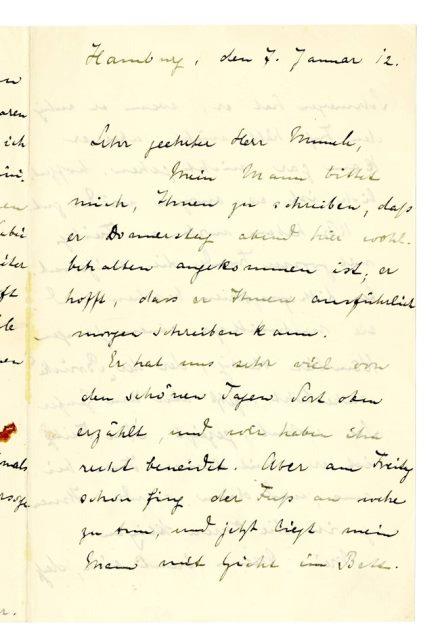 Hamburg, den 7. Januar 12.
Sehr geehrter Herr Munch,
Mein Mann bittet
mich, Ihnen zu schreiben, daß
er Donnerstag abend hier wohl-
behalten angekommen ist; er
hofft, dass er Ihnen ausführlich
morgen schreiben kann.
Er hat uns sehr viel von
den schönen Tagen dort oben
erzählt, und wir haben ihn
recht beneidet. Aber am Freitag
schon fing der Fuß an wehe
zu tun, und jetzt liegt mein
Mann mit Gicht im Bett.